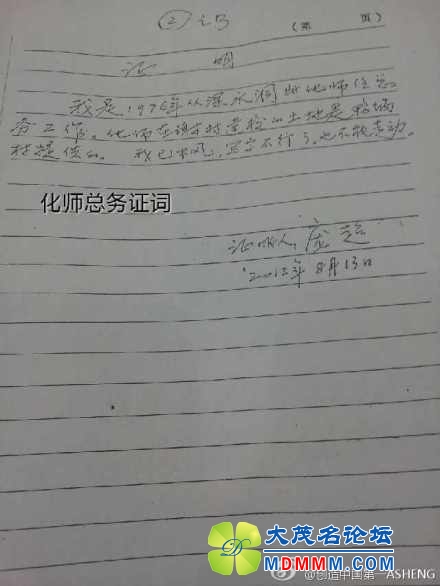 ② 23
（第 页）
证 明
我是1976年从深水洞此化师任总
务工作。化师在该本村建校的土地是鸭塘
村提供的。 我已中风，写字不行了，也不能走动。
化师总务证词
证明人 庞超
2012年8月13日
大茂名论坛
MDMMM.COM
中国第一ASHENG